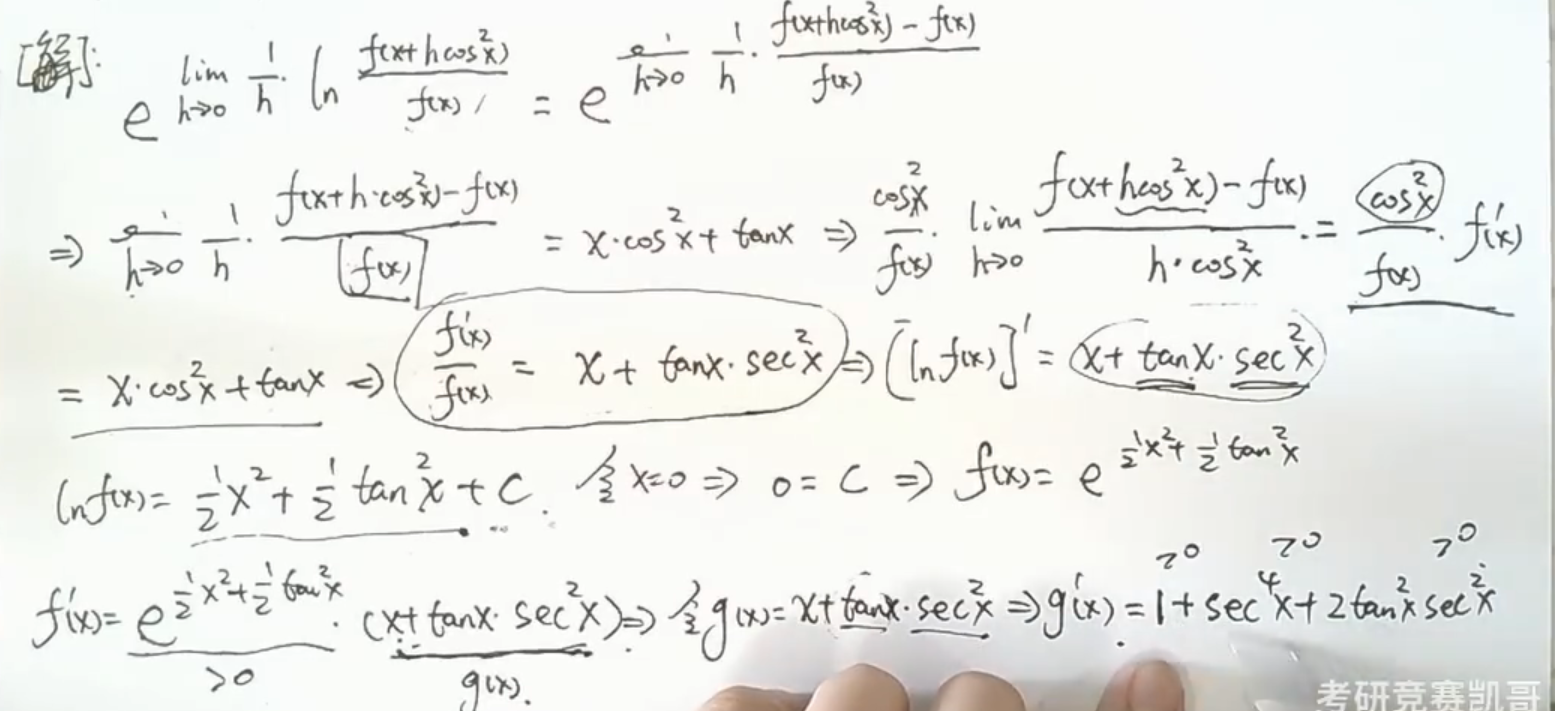 [解]: e^{lim_{h→0} \frac{1}{h}·ln\frac{f(x+hcos²x)}{f(x)}} = e^{lim_{h→0} \frac{1}{h}·\frac{f(x+hcos²x)-f(x)}{f(x)}}
⇒ lim_{h→0} \frac{1}{h}·\frac{f(x+h·cos²x)-f(x)}{f(x)} = x·cos²x+tanx ⇒ \frac{cos²x}{f(x)}·lim_{h→0}\frac{f(x+hcos²x)-f(x)}{h·cos²x}·=\frac{cos²x}{f(x)}·f'(x)
= x·cos²x+tanx ⇒ \frac{f'(x)}{f(x)} = x+tanx·sec²x ⇒ [ln f(x)]' = x+tanx·sec²x
lnf(x)= \frac{1}{2}x²+\frac{1}{2}tan²x+C. 令x=0 ⇒ 0=C ⇒ f(x)= e^{\frac{1}{2}x²+\frac{1}{2}tan²x}
>0 >0 >0
f'(x)= e^{\frac{1}{2}x²+\frac{1}{2}tan²x}·(x+tanx·sec²x) ⇒ 令g(x)=x+tanx·sec²x ⇒ g'(x)=1+sec⁴x+2tan²x sec²x
>0 g(x).
考研竞赛凯哥